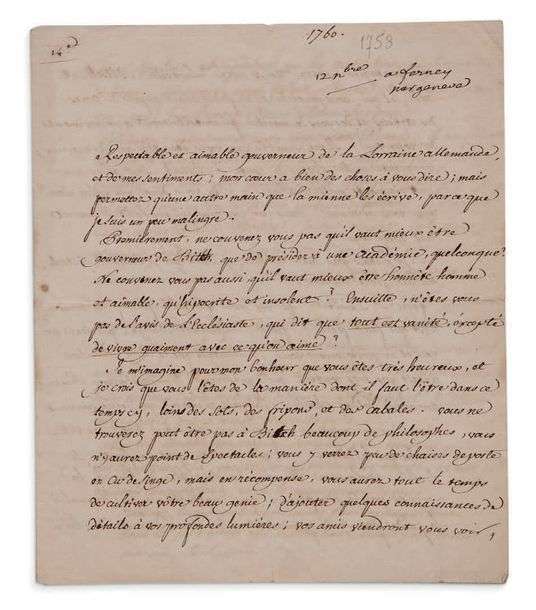 1760.
1758
12 nbre
a ferney
par geneve
Respectable et aimable gouverneur de la Lorraine allemande,
et de mes sentiments ; mon cœur a bien des choses à vous dire ; mais
permettez qu'une autre main que la mienne les écrive, parce que
je suis un peu malingre.
Premièrement, ne convenez vous pas qu'il vaut mieux être
gouverneur de Bitch, que de présider à une Académie, quelconque ?
Ne convenez vous pas aussi qu'il vaut mieux être honnête homme
et aimable, qu'hipocrite et insolent ? Ensuitte, n'êtes vous
pas de l'avis de l'Ecclésiaste, qui dit que tout est vanité, excepté
de vivre guaiment avec ce qu'on aime ?
Je m'imagine pour mon bonheur que vous êtes très heureux, et
je crois que vous l'êtes de la manière dont il faut l'être dans ce
temps cy, loin des sots, des fripons, et des cabales. Vous ne
trouverez peut être pas à Bitch beaucoup de philosophes, vous
n'y aurez point de spectacles ; vous y verrez peu de chaises de poste
en Cu de singe, mais en récompense, vous aurez tout le temps
de cultiver vôtre beau genie ; d'ajouter quelques connaissances de
détails à vos profondes lumières ; vos amis viendront vous voir ;